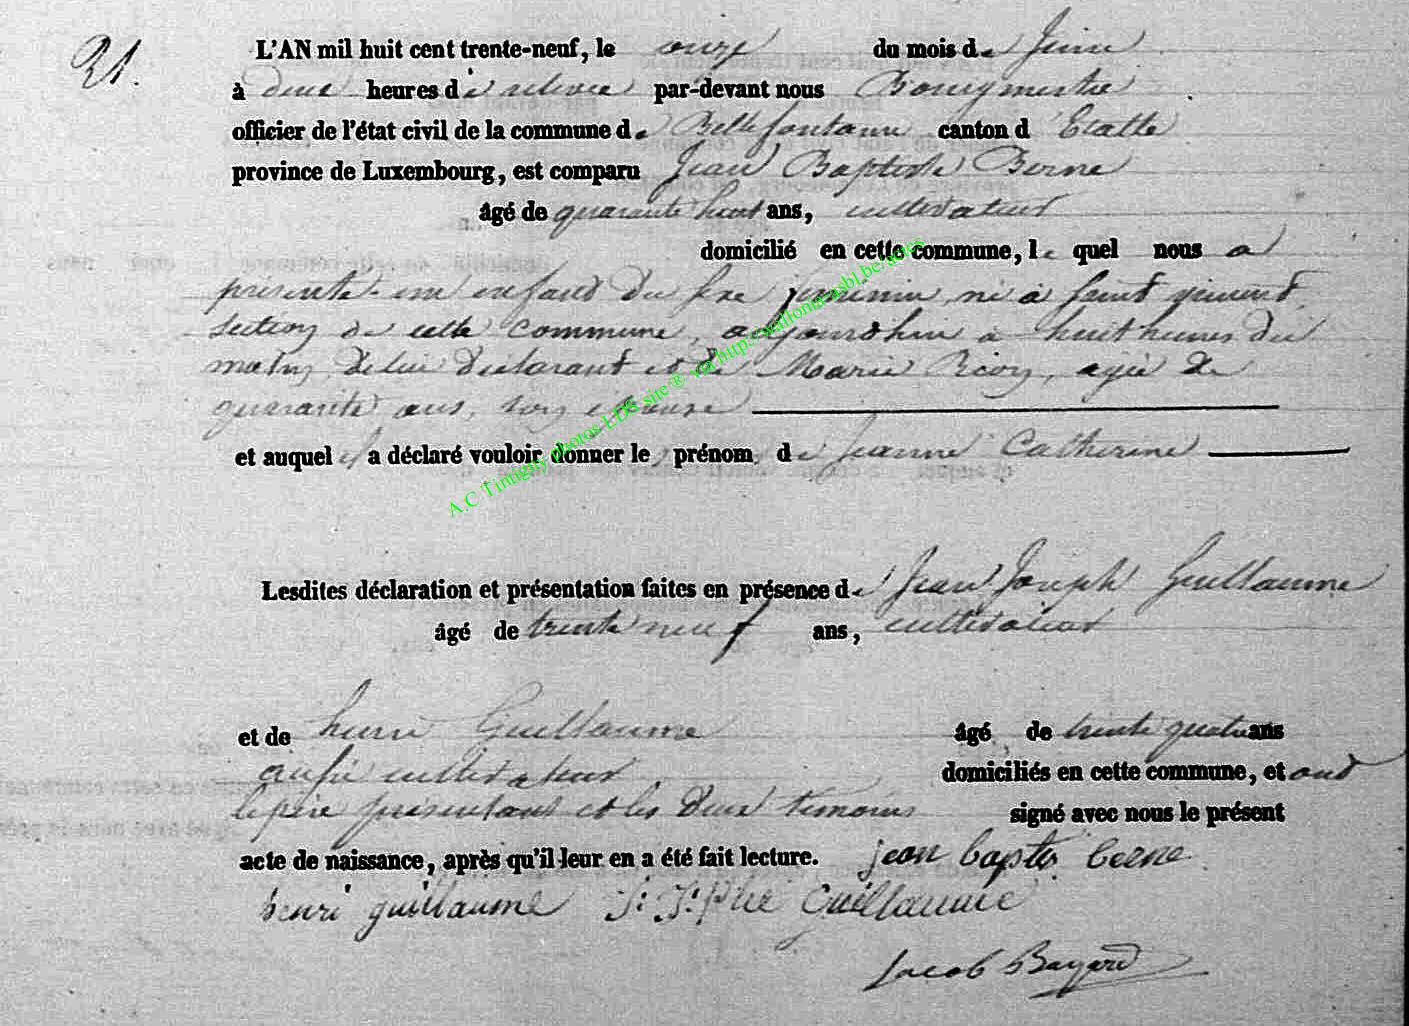 21.
L'AN mil huit cent trente-neuf, le onze du mois de Juin
à deux heures de relevée par-devant nous Bourgmestre
officier de l'état civil de la commune de Bellefontaine canton d'Etalle
province de Luxembourg, est comparu Jean Baptiste Berne
âgé de quarante huit ans, cultivateur
domicilié en cette commune, lequel nous a
présenté un enfant du sexe féminin, né à Saint vincent
section de cette commune, aujourdhui à huit heures du
matin, de lui déclarant et de Marie Rion, agée de
quarante ans, son épouse
et auquel il a déclaré vouloir donner les prénoms de Jeanne Catherine
Lesdites déclaration et présentation faites en présence de Jean Joseph Guillaume
âgé de trente neuf ans, cultivateur
et de henri Guillaume âgé de trente quatre ans
aussi cultivateur, domiciliés en cette commune, et ont
le père présentant et les deux témoins signé avec nous le présent
acte de naissance, après qu'il leur en a été fait lecture. jean bapte berne
henri guillaume J: J:phe Guillaume
Jacob Bayard
A.C Tintigny photos LDS site ® via http://wallonia-asbl.be/actes